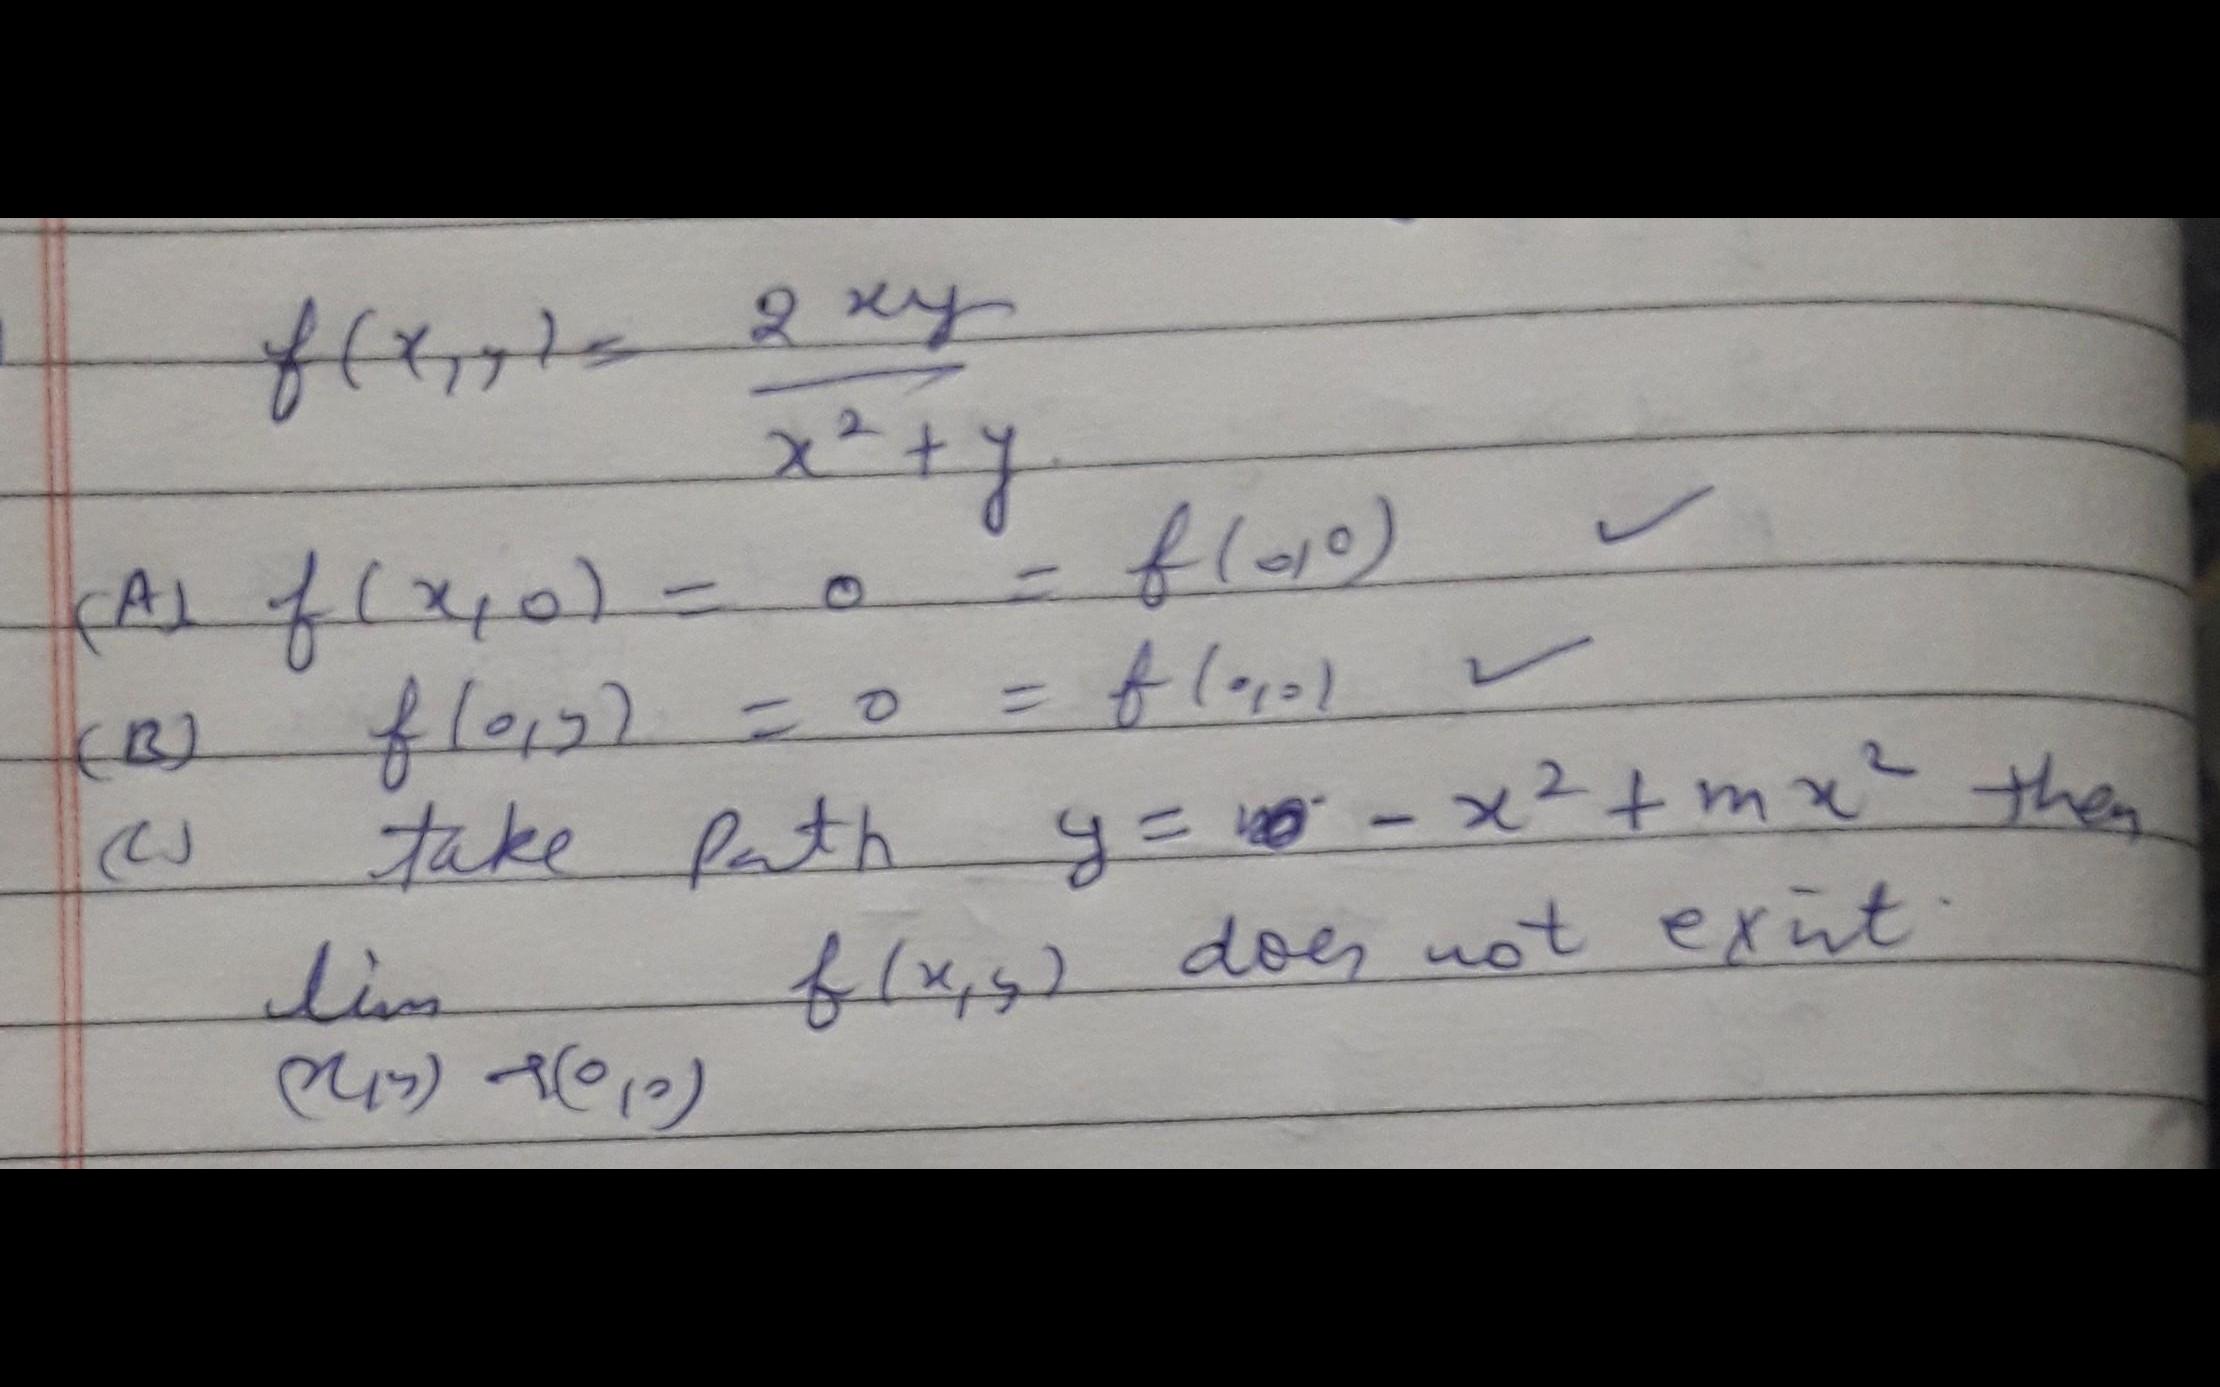 f(x,y) = 2xy / x² + y
(A) f(x,0) = 0 = f(0,0) ✓
(B) f(0,y) = 0 = f(0,0) ✓
(C) take path y = - x² + mx² then
lim f(x,y) does not exist.
(x,y) → (0,0)